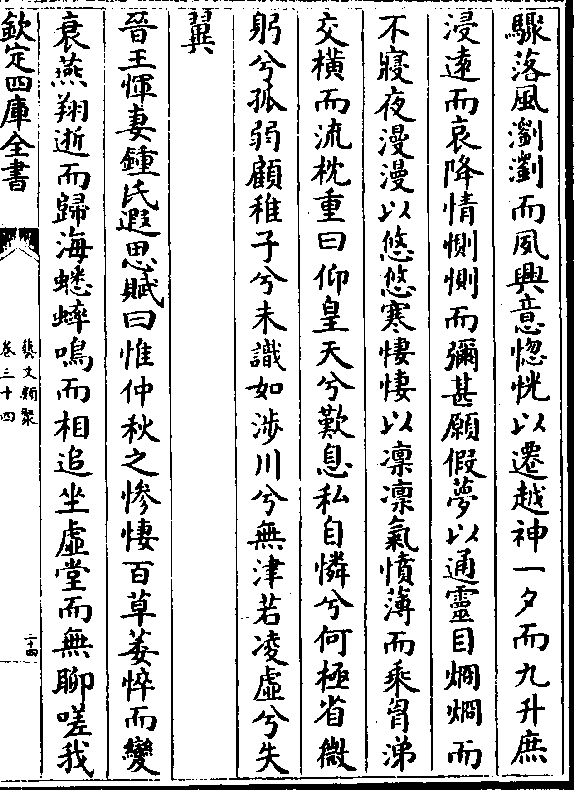 驟落風瀏瀏而夙興意惚恍以遷越神一夕而九升庶
浸遠而哀降情惻惻而彌甚願假夢以通靈目烱烱而
不寢夜漫漫以悠悠寒悽悽以凛凛氣憤薄而乘胷涕
交横而流枕重曰仰皇天兮歎息私自憐兮何極省微
躬兮孤弱顧稚子兮未識如涉川兮無津若凌虛兮失
翼
晉王惲妻鍾氏遐思賦曰惟仲秋之慘悽百草萎悴而變
衰燕翔逝而歸海蟋蟀鳴而相追坐虛堂而無聊嗟我
欽定四庫全書
藝文類聚
卷三十四
二十四